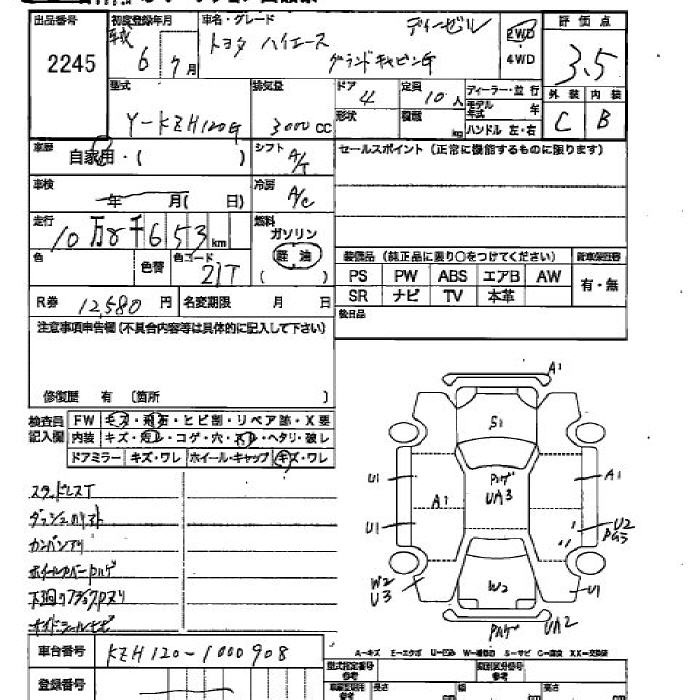 出品番号 初度登録年月 車名・グレード ディーゼル 2WD 評価点
2245 6 7月 トヨタ ハイエース
グランドキャビンG 4WD 3.5
型式 排気量 ドア 4 定員 10人 ディーラー・並行 外装 内装
Y-KZH120G 3000cc 形状 積載 kg モデル年式 年 C B
ハンドル 左・右
車歴 自家用・( ) シフト A/T セールスポイント(正常に機能するものに限ります)
車検 年 月( 日) 冷房 A/C
走行 10万8千653km 燃料
ガソリン
軽油
( )
色 色替 色コード 21T
装備品(純正品に限り○をつけてください) 新車保証書
PS PW ABS エアB AW 有・無
SR ナビ TV 本革
R券 12,580円 名変期限 月 日 後日品
注意事項申告欄(不具合内容等は具体的に記入して下さい)
修復歴 有 〔箇所 〕
検査員記入欄 FW キズ・飛石・ヒビ割・リペア跡・X要
内装 キズ・汚レ・コゲ・穴・スレ・ヘタリ・破レ
ドアミラー キズ・ワレ ホイール・キャップ キズ・ワレ
スタッドレスT
A1
S1
ハゲ
UA3
U1
A1
A1
U1
U2
PG3
W2
U3
W2
U1
ハゲ UA2
車台番号 KZH120-1000908
A-キズ E-エクボ U-凹み W-補修跡 S-サビ C-腐食 XX-交換済
登録番号
型式指定番号 参考 類別区分番号 参考
長さ 幅 高さ